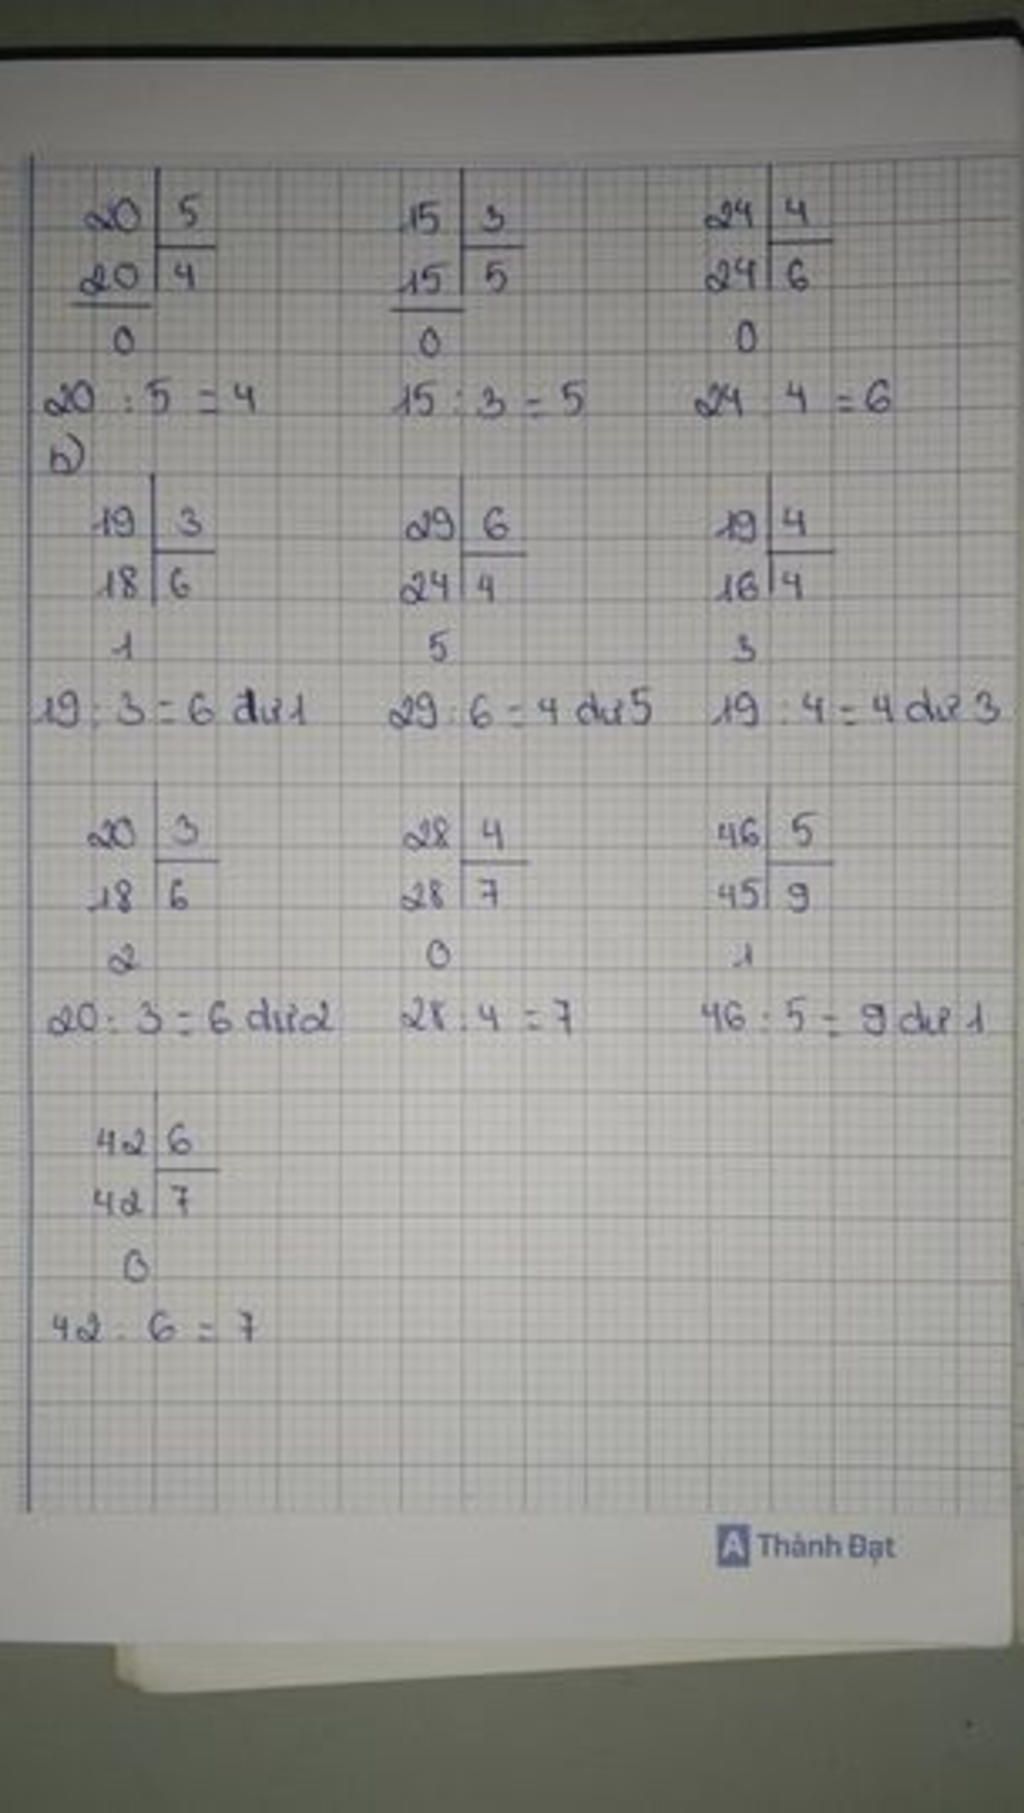 20 5 15 3 24 4
20 4 15 5 24 6
0 0 0
20 : 5 = 4 15 : 3 = 5 24 : 4 = 6
b)
19 3 29 6 19 4
18 6 24 4 16 4
1 5 3
19 : 3 = 6 dư 1 29 : 6 = 4 dư 5 19 : 4 = 4 dư 3
20 3 28 4 46 5
18 6 28 7 45 9
2 0 1
20 : 3 = 6 dư 2 28 : 4 = 7 46 : 5 = 9 dư 1
42 6
42 7
0
42 : 6 = 7
A Thành Đạt